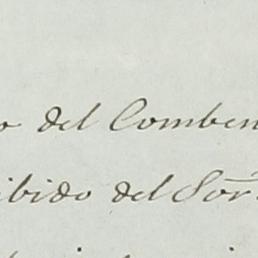 o del Comben
ibido del Sor